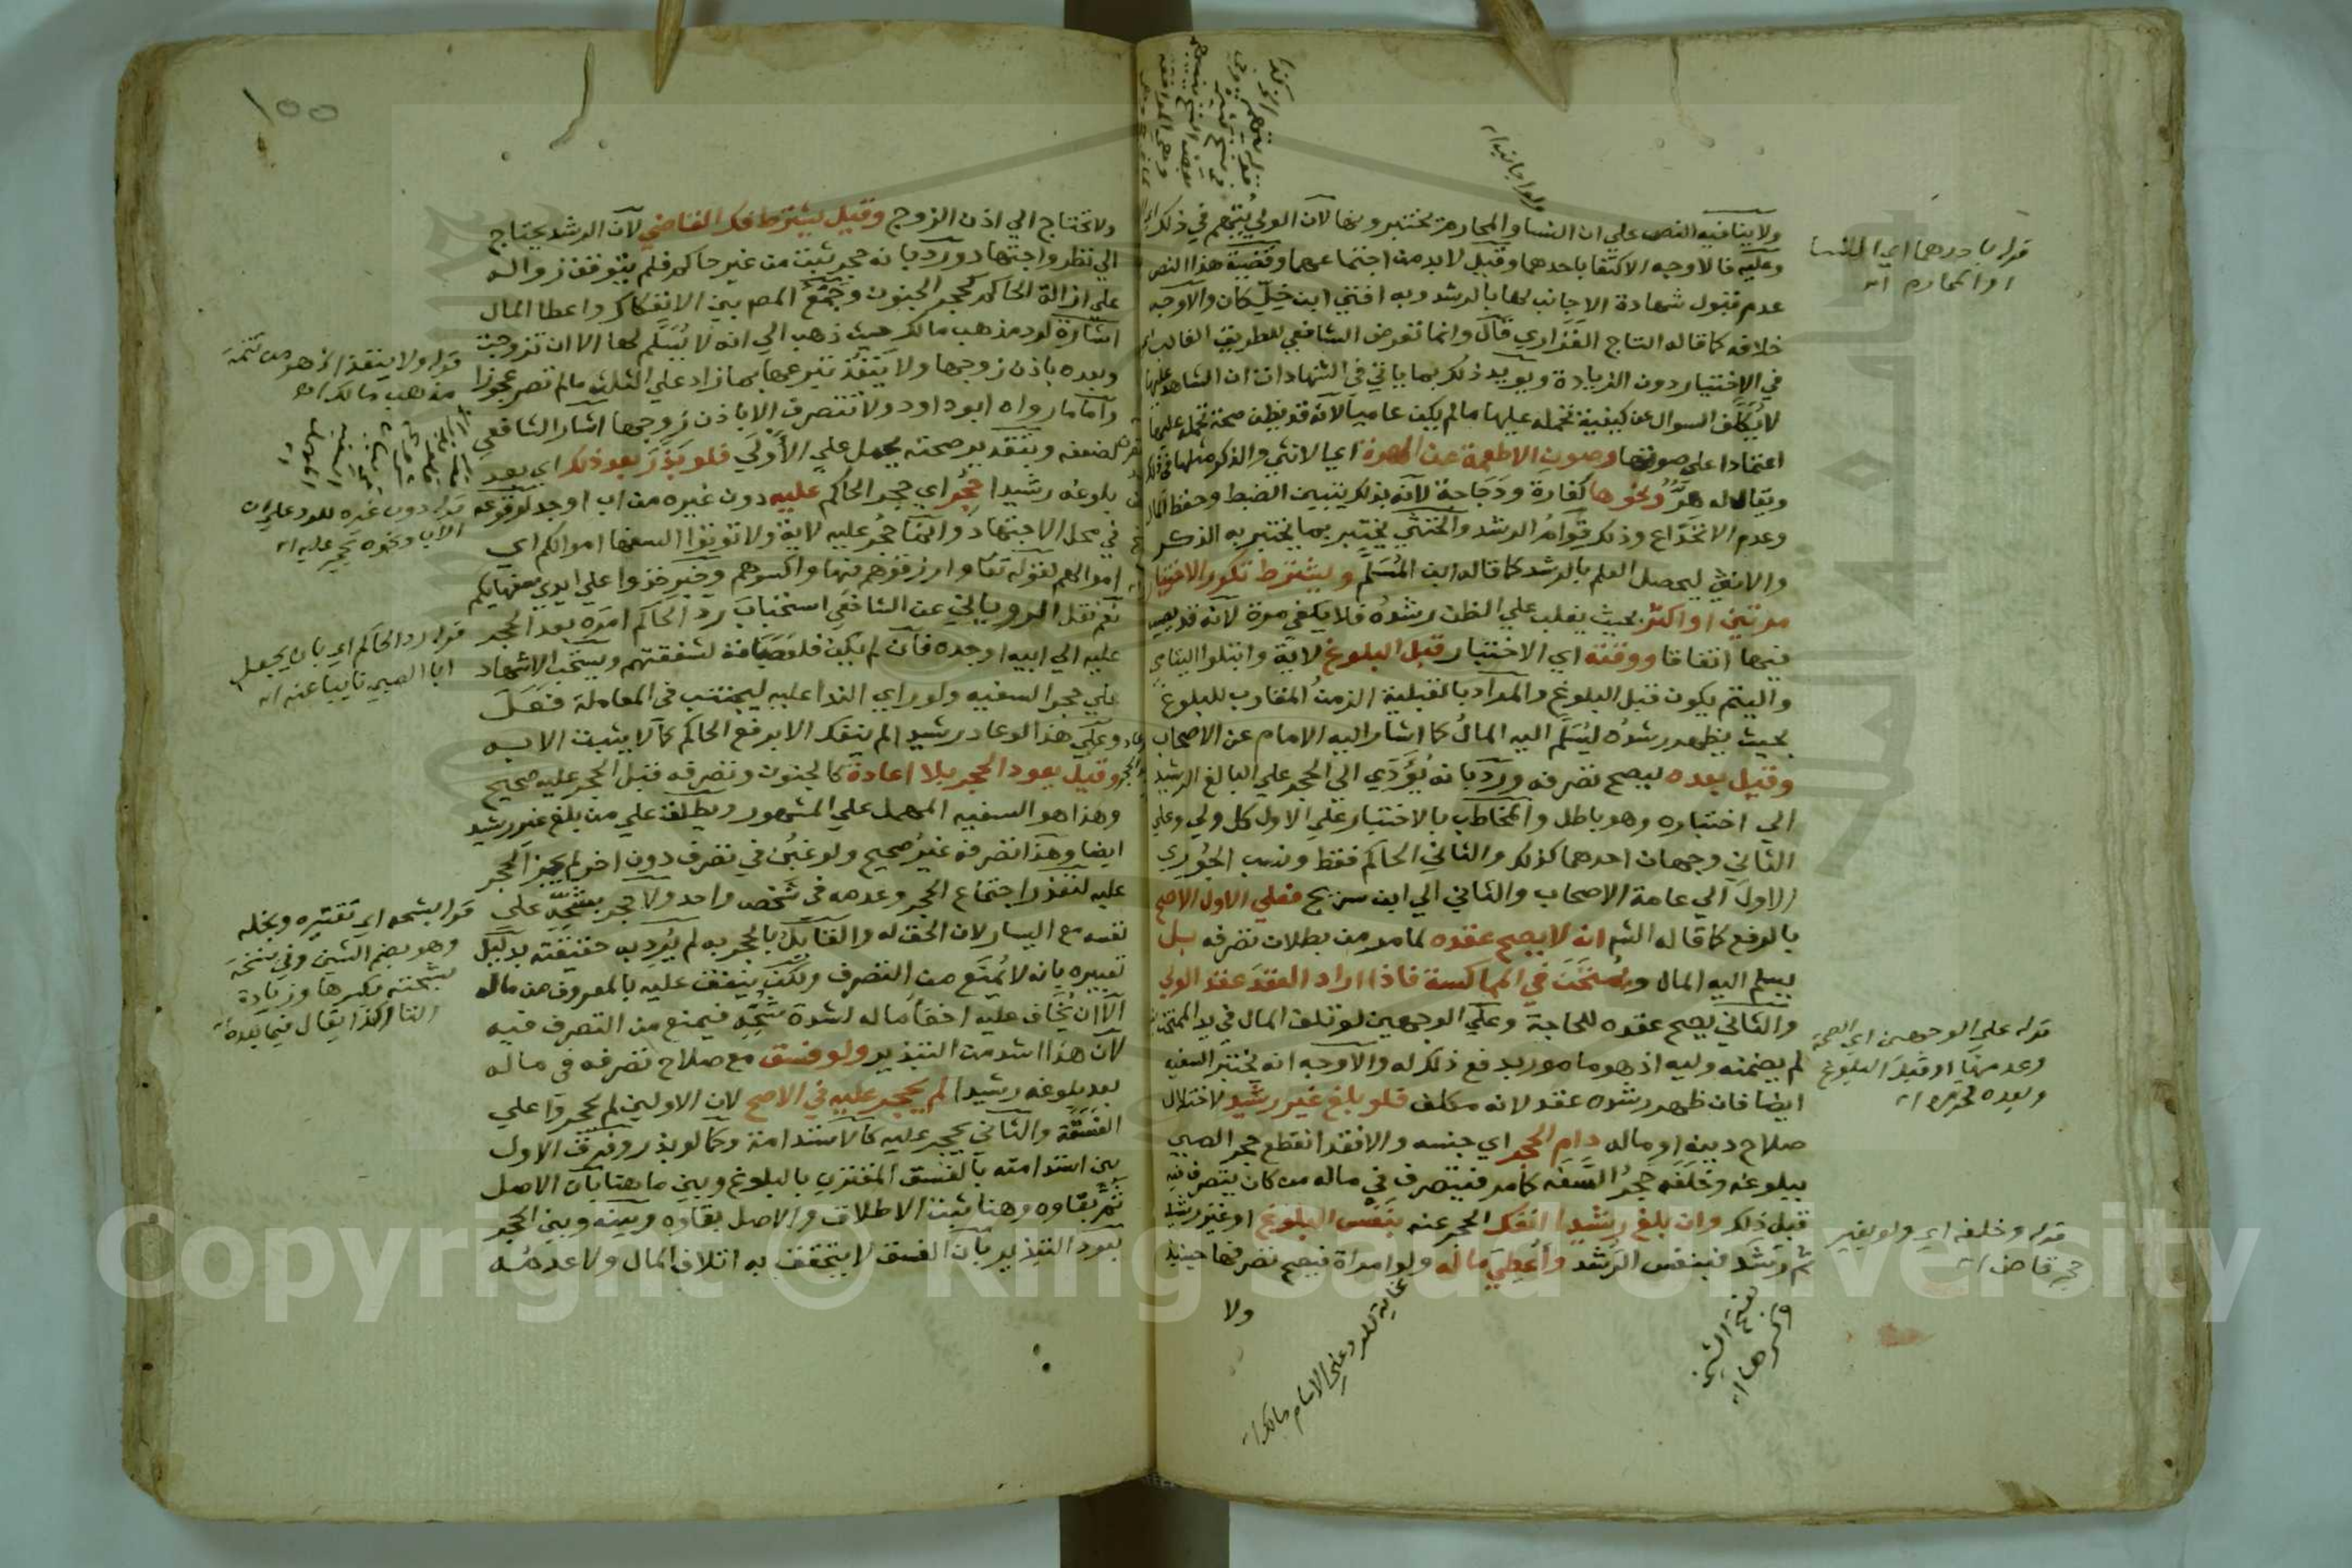 ولا ينافيه النص علي ان النسا والمحارم تختبروها لان الولي يتهم في ذلك
وعليه فالاوجه الاكتفا باحدهما وقيل لابد من اجتماعهما وقضية هذا النص
عدم قبول شهادة الاجانب لها بالرشد وبه افتي ابن خلكان والاوجه
خلافه كما قاله التاج الفزاري قال وانما تعرض الشافعي للطريق الغالب
في الاختيار دون الزيادة ويويد ذلك بما ياتي في الشهادات ان الشاهد عليها
لا يكلف السوال عن كيفية تحمله عليها ما لم يكن عاميا لانه قد يظن صحة تحمله عليها
اعتمادا علي صوتها وصون الاطعمة عن الهرة اي الانثي والذكر مثلها في ذلك
ويقال له هر ونحوها كفارة ودجاجة لانه بذلك يتبين الضبط وحفظ المال
وعدم الانخداع وذلك قوام الرشد والخنثي يختبر بما يختبر به الذكر
والانثي ليحصل العلم بالرشد كما قاله ابن المسلم ويشترط تكرر الاختبار
مرتين او اكثر بحيث يغلب علي الظن رشده فلا يكفي مرة لانه قد يصيب
فيها اتفاقا ووقته اي الاختبار قبل البلوغ لاية وابتلوا اليتامي
واليتم يكون قبل البلوغ والمراد بالقبلية الزمن المقارب للبلوغ
بحيث يظهر رشده ليسلم اليه المال كما اشار اليه الامام عن الاصحاب
وقيل بعده ليصح تصرفه ورد بانه يؤدي الي الحجر علي البالغ الرشيد
الي اختباره وهو باطل والمخاطب بالاختبار علي الاول كل ولي وعلي
الثاني وجهان احدهما كذلك والثاني الحاكم فقط ونسب الجوري
الاول الي عامة الاصحاب والثاني الي ابن سريج فعلي الاول الاصح
بالرفع كما قاله الشم انه لا يصح عقده لما مر من بطلان تصرفه بل
يسلم اليه المال ويمتحن في المماكسة فاذا اراد العقد عقد الولي
والثاني يصح عقده للحاجة وعلي الوجهين لو تلف المال في يد الممتحن
لم يضمنه وليه اذ هو مامور بدفع ذلك له والاوجه انه يختبر السفيه
ايضا فان ظهر رشده عقد لانه مكلف فلو بلغ غير رشيد لاختلال
صلاح دينه او ماله دام الحجر اي جنسه والا فقد انقطع حجر الصبي
ببلوغه وخلفه حجر السفه كما مر فيتصرف في ماله من كان يتصرف فيه
قبل ذلك وان بلغ رشيدا انفك الحجر عنه بنفس البلوغ او غير رشيد
ثم رشد فبنفس الرشد واعطي ماله ولو امراة فيصح تصرفها حينئذ
ولا
قوله باحدهما اي النسا
او المحارم اه
قوله علي الوجهين اي الصحة
وعدمها او قبل البلوغ
وبعده
قوله وخلفه اي ولو بغير
حجر قاض اه
غاية للرد علي الامام مالك اه
بفتح الشين
وكسرها اه
١٥٥
ولا تحتاج الي اذن الزوج وقيل يشترط فك القاضي لان الرشد يحتاج
الي نظر واجتهاد ورد بانه حجر ثبت من غير حاكم فلم يتوقف زواله
علي ازالة الحاكم كحجر الجنون وجمع المصم بين الانفكاك واعطا المال
اشارة لرد مذهب مالك حيث ذهب الي انه لا يسلم لها الا ان تزوجت
وبعده باذن زوجها ولا ينفذ تبرعها بما زاد علي الثلث ما لم تصر عجوزا
واما ما رواه ابو داود ولا تتصرف الا باذن زوجها اشار الشافعي
لضعفه وبتقدير صحته يحمل علي الاولي فلو بذر بعد ذلك اي بعد
بلوغه رشيدا حجر اي حجر الحاكم عليه دون غيره من اب او جد لوقوعه
في محل الاجتهاد وانما حجر عليه لاية ولا توتوا السفها اموالكم اي
اموالهم لقوله تعا وارزقوهم فيها واكسوهم وخبر خذوا علي ايدي سفهايكم
نعم نقل الروياني عن الشافعي استحباب رد الحاكم امره بعد الحجر
عليه الي ابيه او جده فان لم يكن فلعصباته لشفقتهم ويستحب الاشهاد
علي حجر السفيه ولو راي الندا عليه ليجتنب في المعاملة فعل
وعلي هذا لو عاد رشيدا لم ينفك الا برفع الحاكم كما لا يثبت الا به
وقيل يعود الحجر بلا اعادة كالجنون وتصرفه قبل الحجر عليه صحيح
وهذا هو السفيه المهمل علي المشهور ويطلق علي من بلغ غير رشيد
ايضا وهذا تصرفه غير صحيح ولو غبن في تصرف دون اخر لم يجز الحجر
عليه لتعذر اجتماع الحجر وعدمه في شخص واحد ولا حجر بشحه علي
نفسه مع اليسار لان الحق له والقايل بالحجر به لم يرد به حقيقته بدليل
تعبيره بانه لا يمنع من التصرف ولكن ينفق عليه بالمعروف من ماله
الا ان يخاف عليه اخفا ماله لشدة شحه فيمنع من التصرف فيه
لان هذا اشد من التبذير ولو فسق مع صلاح تصرفه في ماله
بعد بلوغه رشيدا لم يحجر عليه في الاصح لان الاولين لم يحجروا علي
الفسقة والثاني يحجر عليه كالاستدامة وكما لو بذر وفرق الاول
بين استدامته بالفسق المقترن بالبلوغ وبين ما هنا بان الاصل
ثم بقاوه وهنا ثبت الاطلاق والاصل بقاوه وبينه وبين الحجر
بعود التبذير بان الفسق لا يتحقق به اتلاف المال ولا عدمه
قوله ولا ينفذ الخ هو من تتمة
مذهب مالك اه
قوله دون غيره للرد علي ان
الاب ونحوه يحجر عليه اه
قوله رد الحاكم اي بان يجعل
ابا الصبي نايبا عنه اه
قوله بشحه اي تقتيره وبخله
وهو بضم الشين وفي نسخة
بشحته بكسرها وزيادة
التا وكذا يقال فيما بعده اه